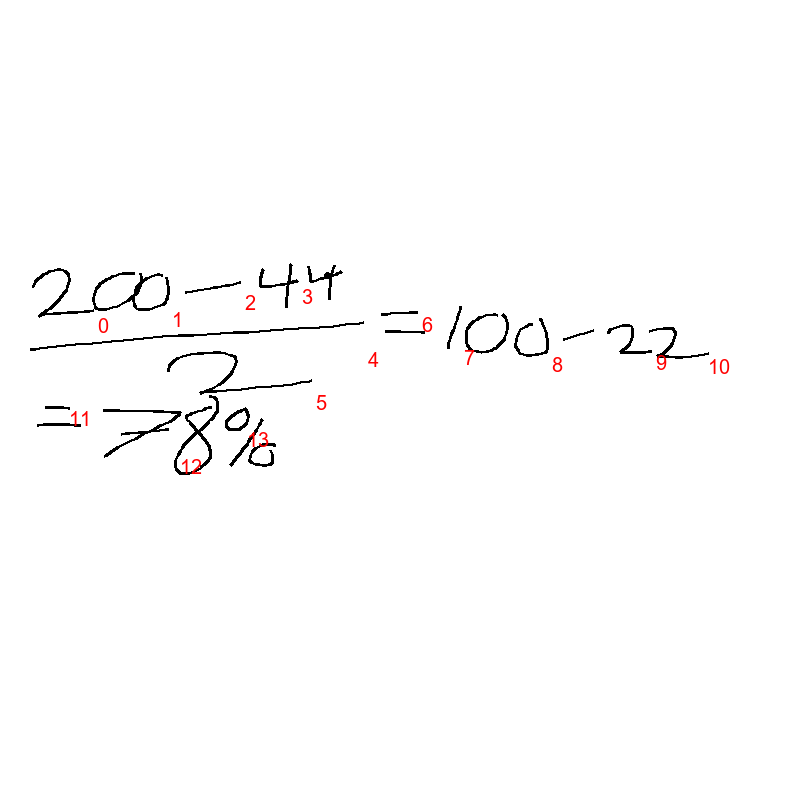 200-44
/2 = 100-22
= 78%
0 1 2 3 4 5 6 7 8 9 10 11 12 13